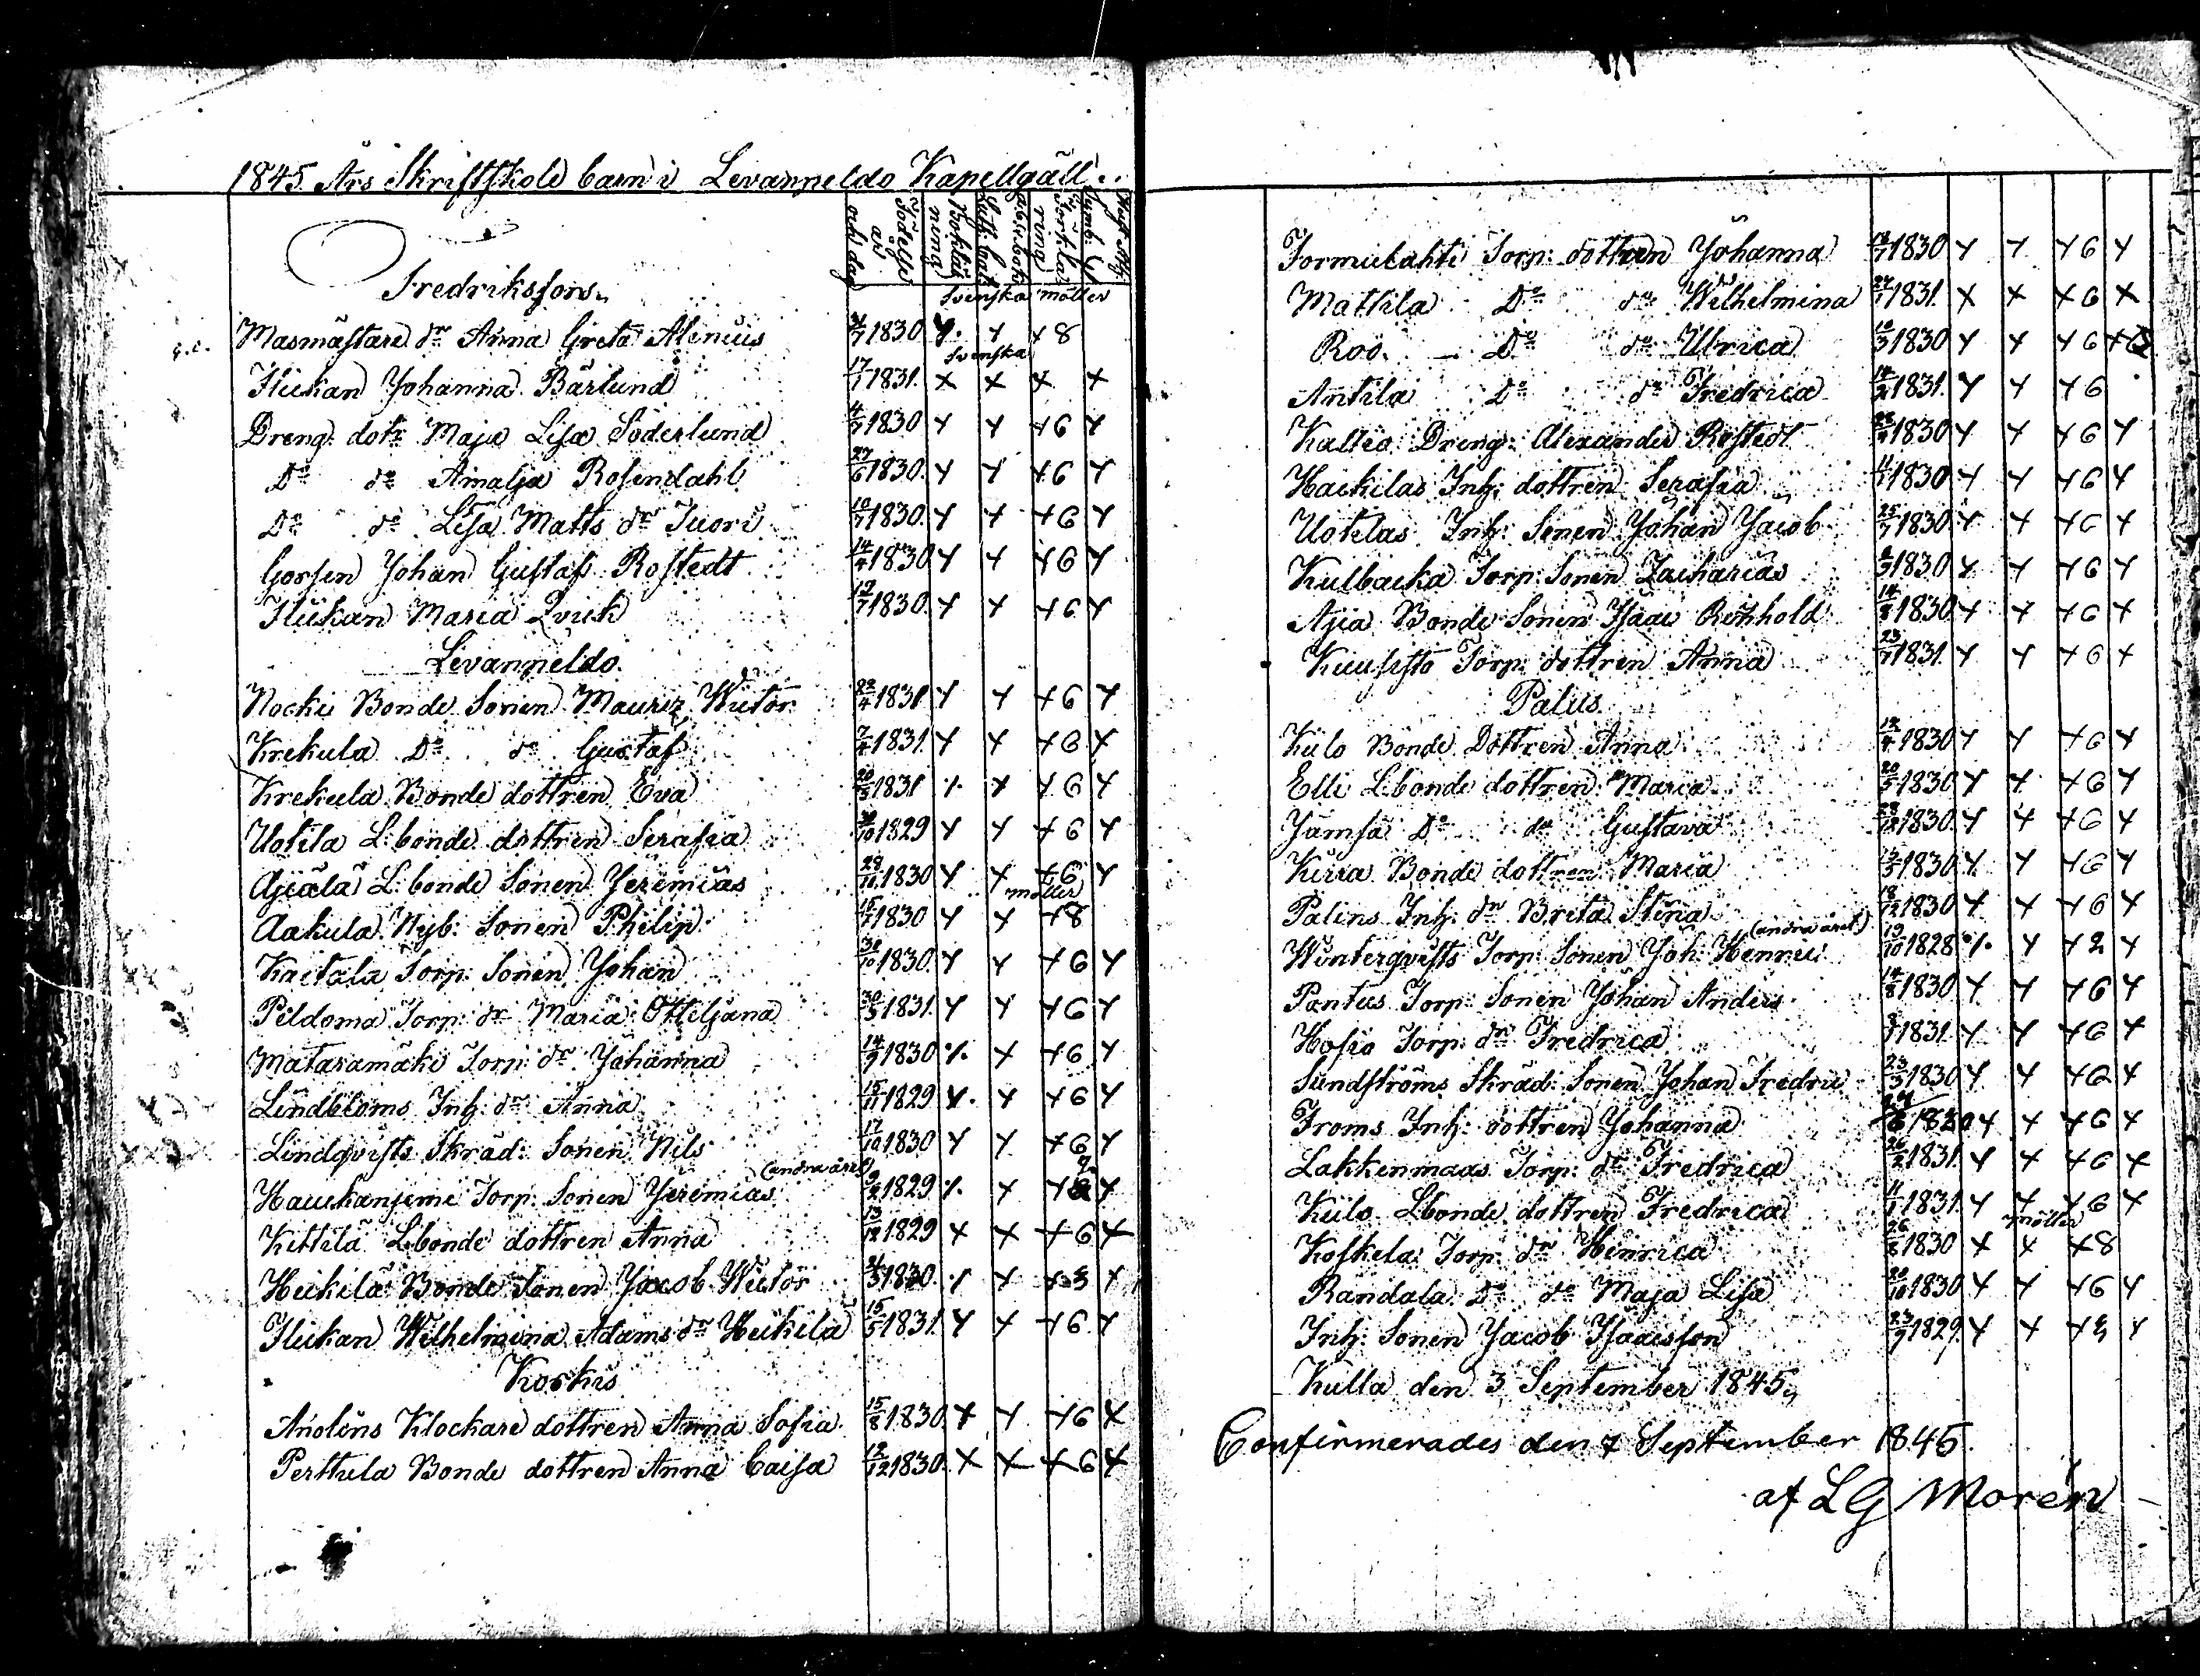 1845 Års Skriftskole barn i Levanpeldo Kapellgäll
Födelse år och dag
Bokläsning
Luth: Cat:
a.b.c. bok
Förklaring
Symb:
Fredriksfors
Svenska möller
Masmästare dr Anna Greta Alenius 1830 + + + 8
Svenska
Flickan Johanna Bärlund 17/1 1831. + + + +
Dreng: dotr Maja Lisa Söderlund 4/7 1830 + + +6 +
Do do Amalja Rosendahl 27/6 1830. + + +6 +
Do do Lisa Matts dr Juori 10/7 1830. + + +6 +
Gossen Johan Gustaf Rostedt 14/4 1830 + + +6 +
Flickan Maria Qvick 19/7 1830. + + +6 +
Levanpeldo.
Nocki Bonde Sonen Mauriz Wictor 22/4 1831 + + +6 +
Krekula Do do Gustaf 7/4 1831. + + +6 +
Krekula Bonde dottren Eva 20/3 1831 ./. + +6 +
Uotila L: bonde dottren Serafia 1829 + + +6 +
Ajiala L: bonde Sonen Jeremias 28/11 1830 + + +6 +
möller
Aakula Nyb: Sonen Philip 15/7 1830 + + +8
Kaitala Torp: Sonen Johan 30/10 1830. + + +6 +
Peldoma Torp: dr Maria Otteljana 30/3 1831. + + +6 +
Mataramäki Torp: dr Johanna 14/9 1830 ./. + +6 +
Lindbloms Inh: dr Anna 15/11 1829 +. + +6 +
Lindqvists Skräd: Sonen Nils 17/10 1830 + + +6 +
Haukanjemi Torp: Sonen Jeremias (andra året) 9/2 1829 ./. + + +
Kittilä Lbonde dottren Anna 13/12 1829 + + +6 +
Heikilä Bonde Sonen Jacob Wictor 1830 ./. + +3 +
Flickan Wilhelmina Adams dr Heikilä 15/5 1831. + + +6 +
Korkis
Anolins Klockare dottren Anna Sofia 15/8 1830. + + +6 +
Perttula Bonde dottren Anna Caisa 12/12 1830. + + +6 +
Tormilahti Torp: dottren Johanna 1830 + + +6 +
Mattila Do do Wilhelmina 27/1 1831. + + +6 +
Roo Do do Ulrica 12/3 1830 + + +6 +
Antila Do do Fredrica 14/2 1831. + + +6
Kallio Dreng: Alexander Rostedt 1830 + + +6 +
Haikilas Inh: dottren Serafia 1830 + + +6 +
Uotilas Inh: Sonen Johan Jacob 25/7 1830 + + +6 +
Kulbacka Torp: Sonen Zacharias 1830 + + +6 +
Ajia Bonde Sonen Isaac Reinhold 14/8 1830 + + +6 +
Kuusisto Torp: dottren Anna 23/1 1831. + + +6 +
Palus.
Külo Bonde Dottren Anna 12/4 1830 + + +6 +
Elli L: bonde dottren Maria 20/5 1830 + + +6 +
Jämsä Do do Gustava 1830. + + +6 +
Kirra Bonde dottren Maria 1830 + + +6 +
Palins Inh: dr Brita Stina 18/12 1830 + + +6 +
Winterqvists Torp: Sonen Joh: Henric (andra året) 19/10 1828 ./. + +2 +
Pontus Torp: Sonen Johan Anders 14/8 1830 + + +6 +
Hosio Torp: dr Fredrica 1831. + + +6 +
Sundströms Skräd: Sonen Johan Fredric 23/3 1830 + + +6 +
Froms Inh: dottren Johanna 24/6 1830 + + +6 +
Lakkenmaas Torp: dr Fredrica 26/2 1831. + + +6 +
Külo Lbonde dottren Fredrica 11/1 1831. + + +6 +
möller
Koskela Torp: dr Henrica 26/8 1830 + + +8
Randala Do do Maja Lisa 20/10 1830 + + +6 +
Inh: Sonen Jacob Isaacsson 23/9 1829. + + +3 +
Kulla den 3 September 1845
Confirmerades den 7 September 1845.
af LG Morén